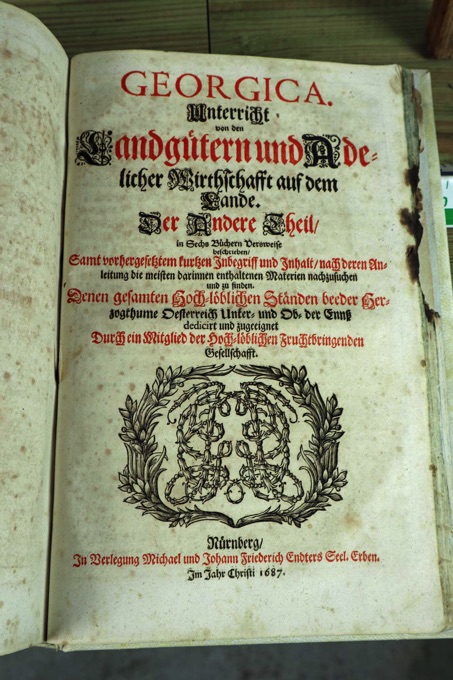 GEORGICA.
Unterricht
von den
Landgütern und Ade-
licher Wirthschafft auf dem
Lande.
Der Andere Theil/
in Sechs Büchern Versweise
beschrieben/
Samt vorhergesetztem kurtzen Inbegriff und Inhalt/ nach deren An-
leitung die meisten darinnen enthaltenen Materien nachzusuchen
und zu finden.
Denen gesamten Hoch-löblichen Ständen beeder Her-
zogthume Oesterreich Unter- und Ob- der Ennß
dedicirt und zugeeignet
Durch ein Mitglied der Hoch-löblichen Fruchtbringenden
Gesellschafft.
Nürnberg/
In Verlegung Michael und Johann Friederich Endters Seel. Erben.
Im Jahr Christi 1687.